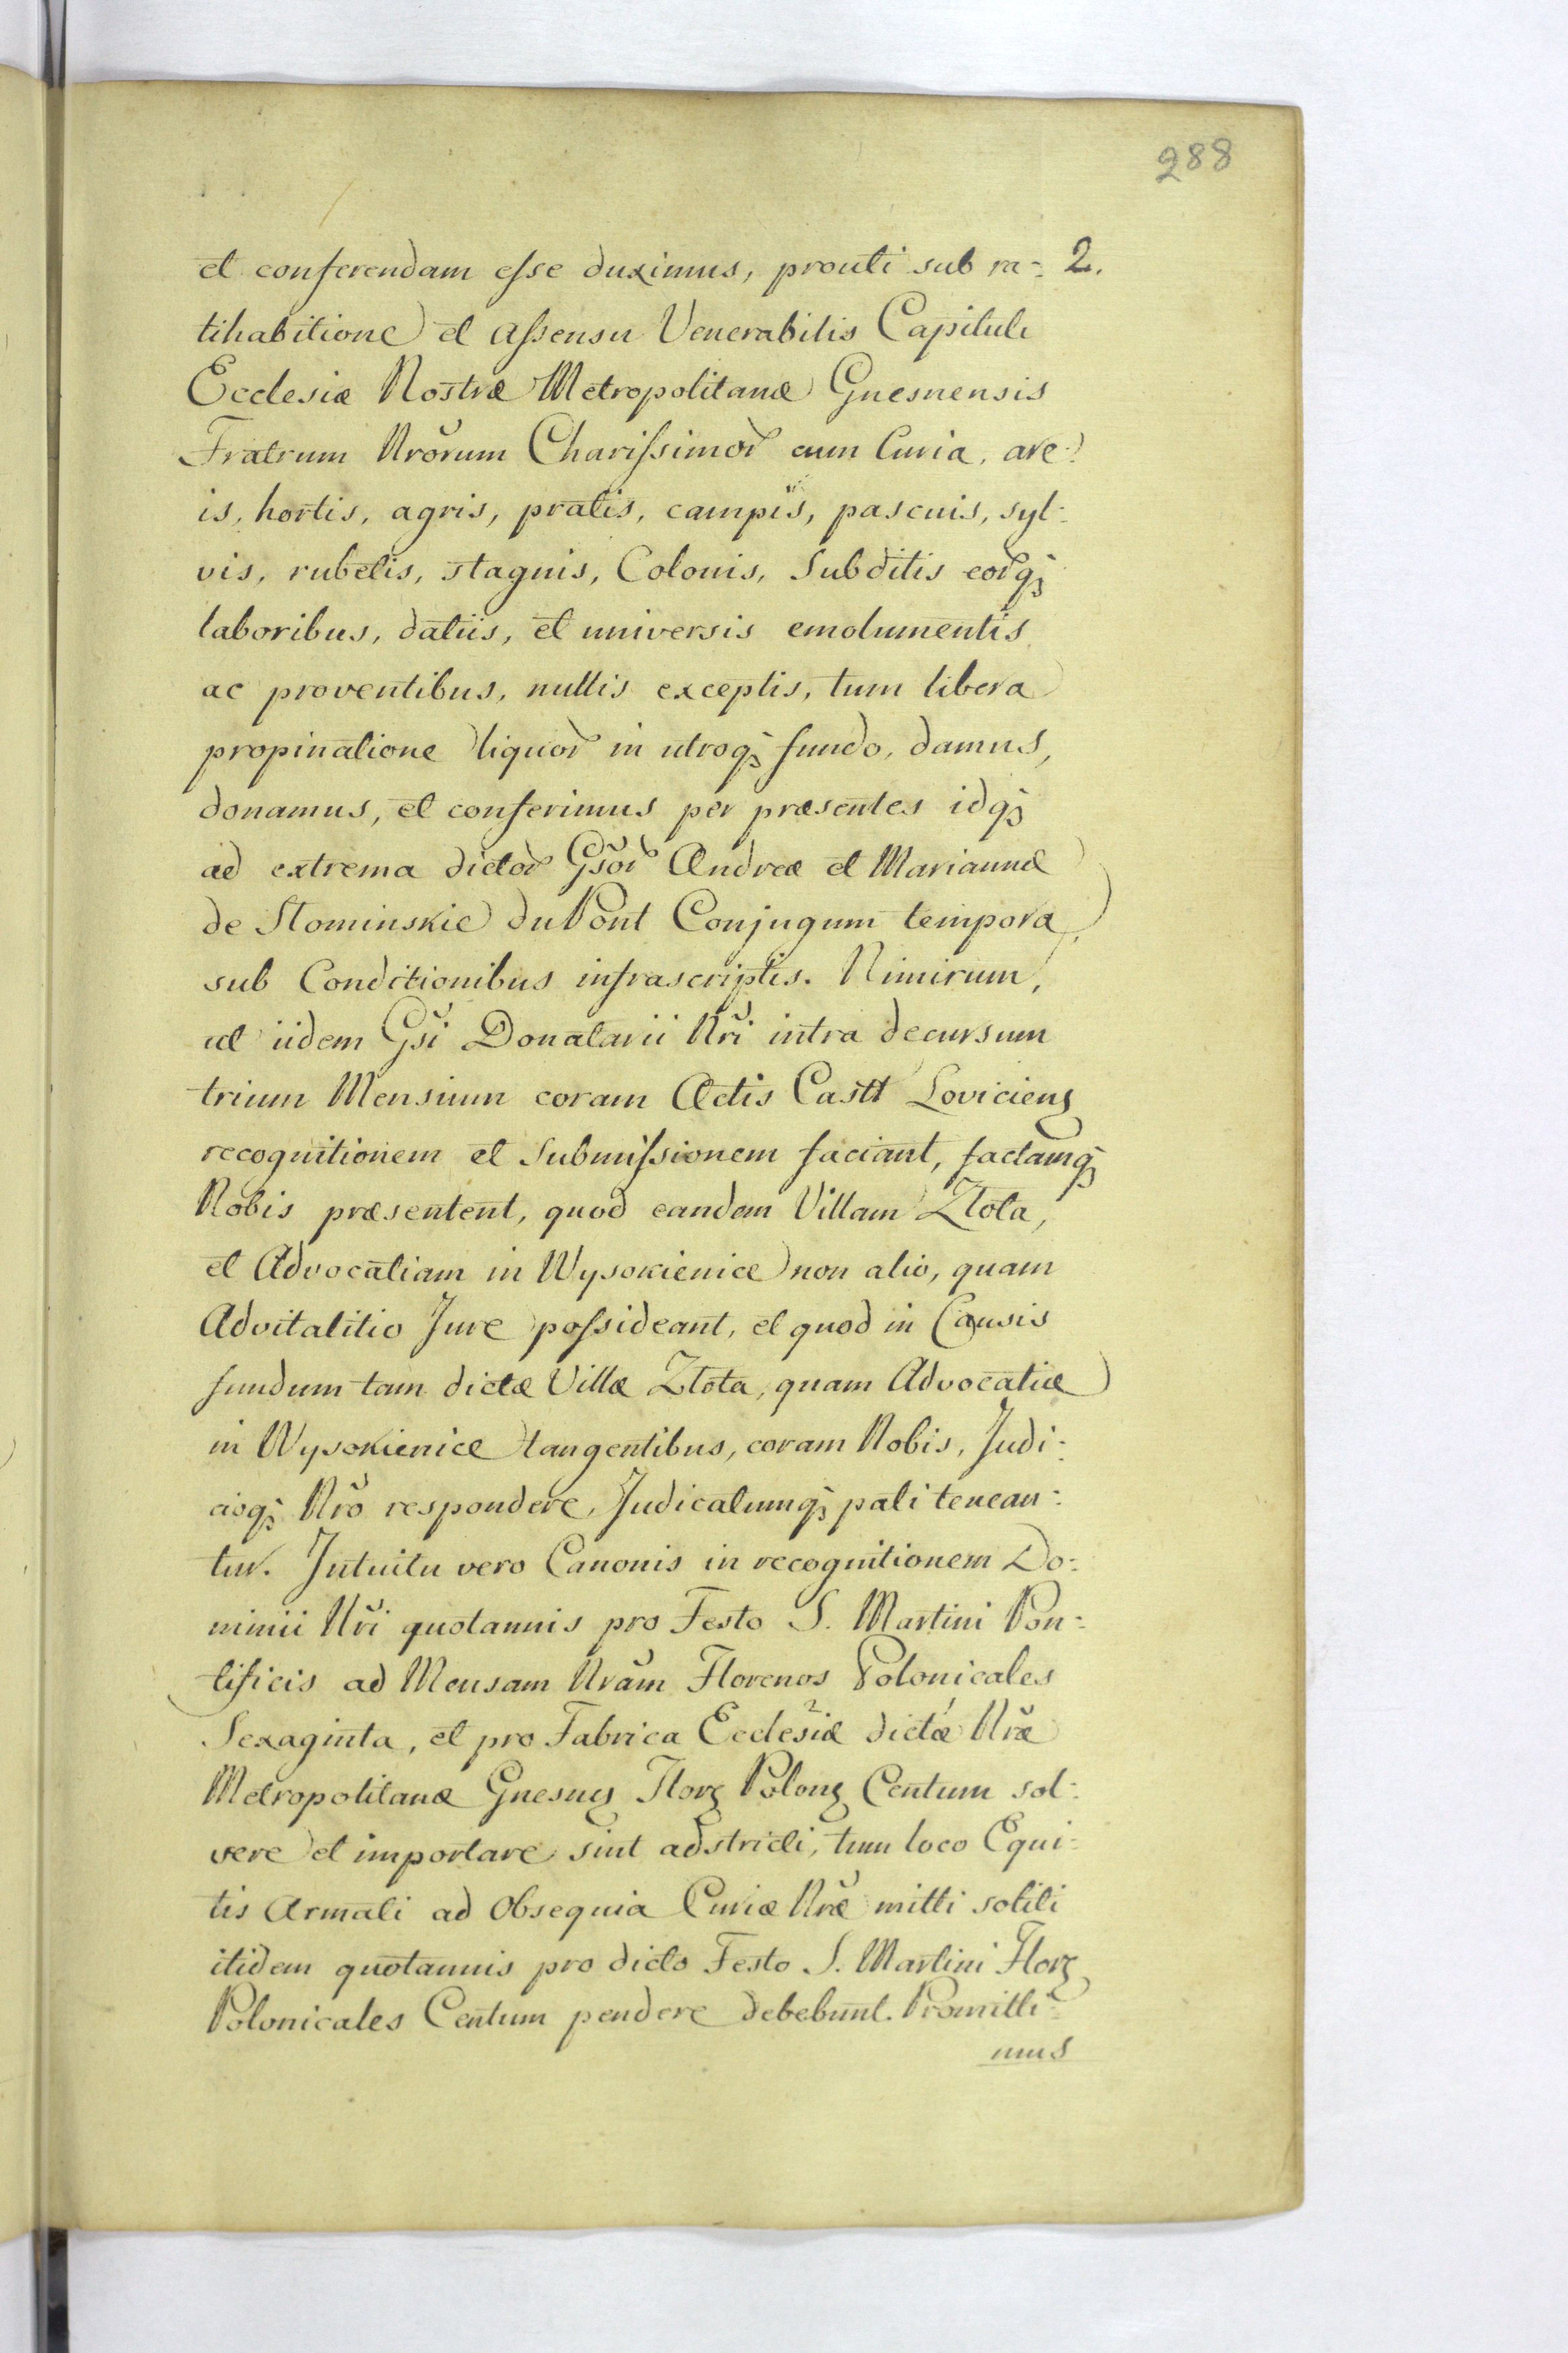 288
et conferendam eſse duximus, prouti sub ra-: 2.
tihabitione et aſsensu Venerabilis Capituli
Ecclesiæ Nostræ Metropolitanæ Gnesnensis
Fratrum Nrõrum Chariſsimor̃ cum Curia, are:
is, hortis, agris, pratis, campis, pascuis, syl:
vis, rubetis, stagnis, Colonis, Subditis eor̃q̃
laboribus, datiis, et universis emolumentis
ac proventibus, nullis exceptis, tum libera
propinatione liquor̃ in utroq̃ fundo, damus,
donamus, et conferimus per præsentes idq̃
ad extrema dictor̃ Gs̃or̃ Andreæ et Mariannæ
de Słominskie duPont Conjugum tempora,
sub Conditionibus infrascriptis. Nimirum,
ut iidem Gs̃i Donatarii Nr̃i intra decursum
trium Mensium coram Actis Castt Loviciens
recognitionem et Submiſsionem faciant, factamq̃
Nobis præsentent, quod eandem Villam Złota,
et Advocatiam in Wysokienice non alio, quam
Advitalitio Jure poſsideant, et quod in Causis
fundum tam dictæ Villæ Złota, quam Advocatiæ
in Wysokienice tangentibus, coram Nobis, Judi:
cioq̃ Nr̃o respondere, Judicatumq̃ pati tenean:
tur. Intuitu vero Canonis in recognitionem Do:
minii Nr̃i quotannis pro Festo S. Martini Pon:
tificis ad Mensam Nrãm Florenos Polonicales
Sexaginta, et pro Fabrica Ecclesiæ dictæ Nr̃æ
Metropolitanæ Gnesnes Flors Polons Centum sol:
vere et importare sint adstricti, tum loco Equi:
tis Armati ad Obsequia Curiæ Nr̃æ mitti soliti
itidem quotannis pro dicto Festo S. Martini Flors
Polonicales Centum pendere debebunt. Promitti:
mus